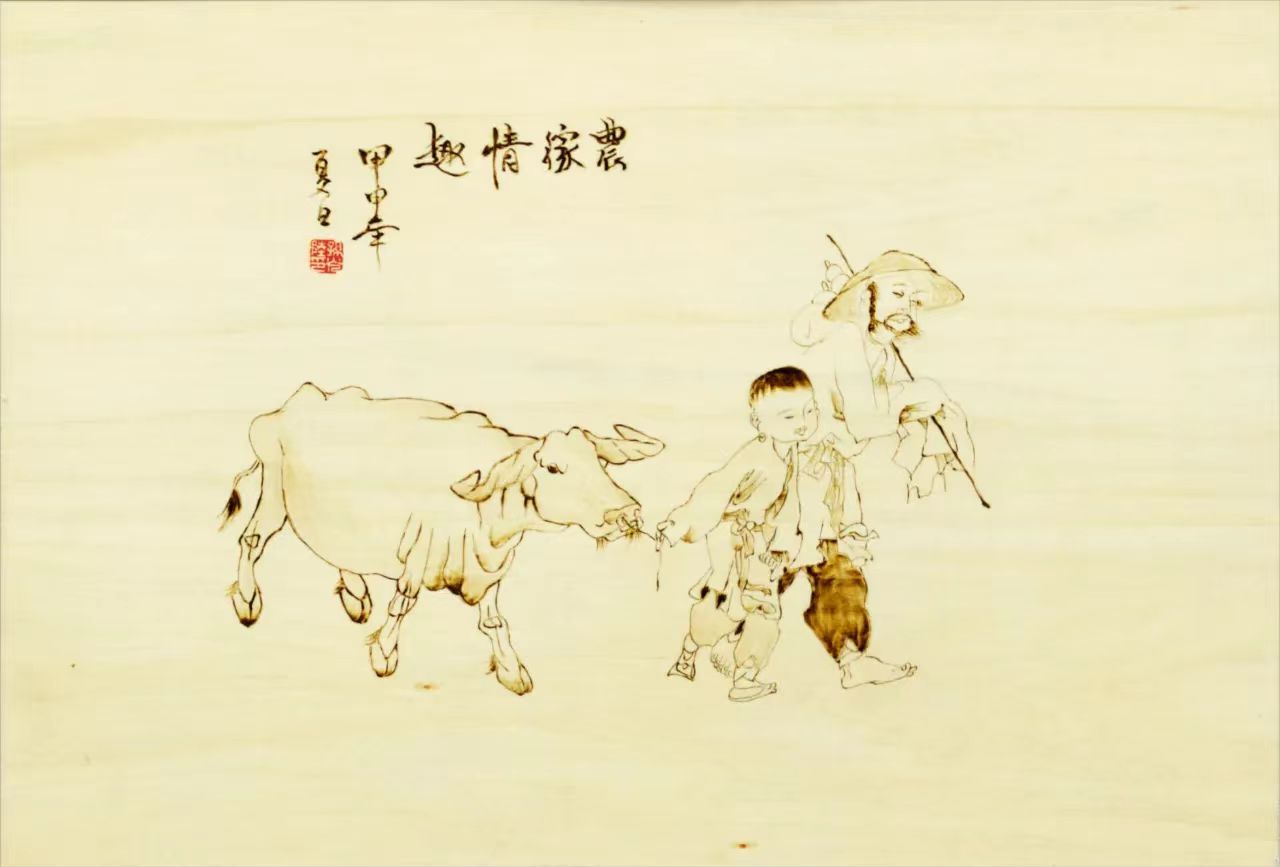 農稼情趣
甲申年
夏日